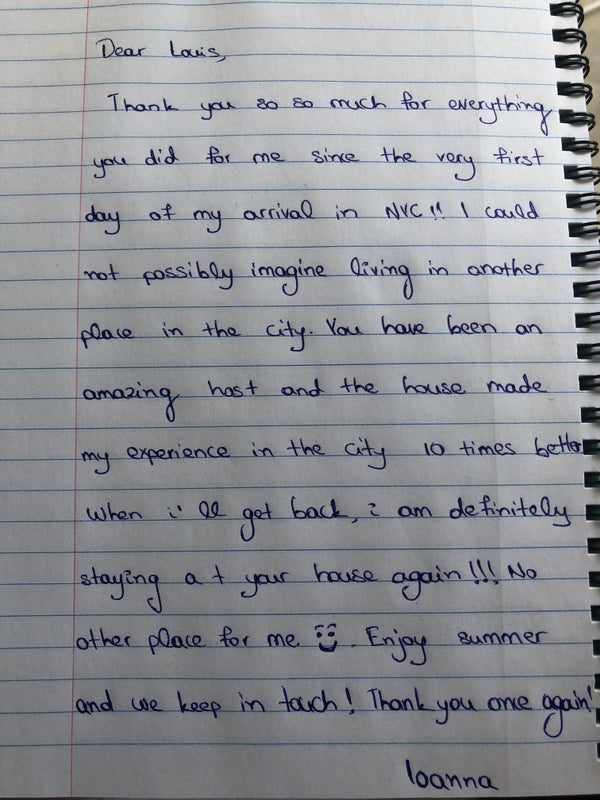 Dear Louis,
Thank you so so much for everything
you did for me since the very first
day of my arrival in NYC!! I could
not possibly imagine living in another
place in the city. You have been an
amazing host and the house made
my experience in the city 10 times better
when i'll get back, i am definitely
staying at your house again!!! No
other place for me. Enjoy summer
and we keep in touch! Thank you once again!
Ioanna